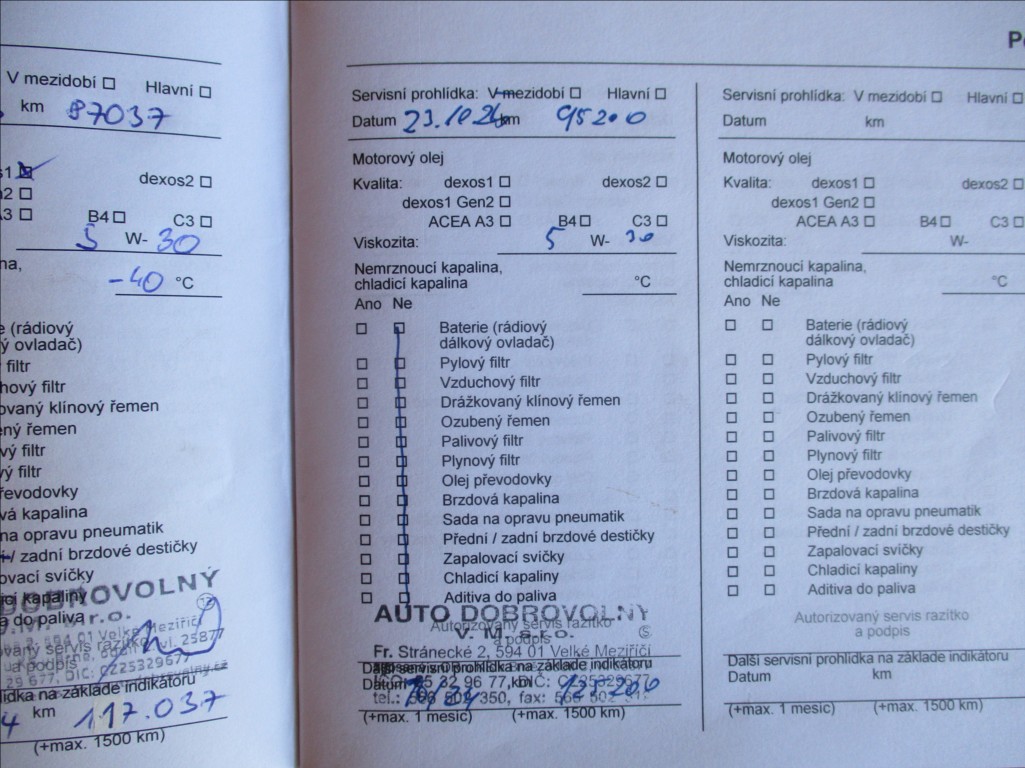 V mezidobí Hlavní
km 87037
dexos2
B4 C3
5 W-30
-40 °C
(rádiový
ovladač)
filtr
filtr
klínový řemen
řemen
filtr
filtr
kapalina
na opravu pneumatik
/ zadní brzdové destičky
svíčky
kapaliny
do paliva
DOBROVOLNÝ
594 01 Velké Meziříčí
a podpis
na základě indikátorů
km 117.037
(+max. 1500 km)
Servisní prohlídka: V mezidobí Hlavní
Datum km 95200
Motorový olej
Kvalita: dexos1 dexos2
dexos1 Gen2
ACEA A3 B4 C3
Viskozita: 5 W- 30
Nemrznoucí kapalina,
chladicí kapalina °C
Ano Ne
Baterie (rádiový
dálkový ovladač)
Pylový filtr
Vzduchový filtr
Drážkovaný klínový řemen
Ozubený řemen
Palivový filtr
Plynový filtr
Olej převodovky
Brzdová kapalina
Sada na opravu pneumatik
Přední / zadní brzdové destičky
Zapalovací svíčky
Chladicí kapaliny
Aditiva do paliva
AUTO DOBROVOLNÝ
Autorizovaný servis razítko
a podpis
V. M. s.r.o.
Fr. Stránecké 2, 594 01 Velké Meziříčí
servisní prohlídka na základě indikátorů
Datum km 125200
(+max. 1 měsíc) (+max. 1500 km)
Servisní prohlídka: V mezidobí Hlavní
Datum km
Motorový olej
Kvalita: dexos1 dexos2
dexos1 Gen2
ACEA A3 B4 C3
Viskozita: W-
Nemrznoucí kapalina,
chladicí kapalina °C
Ano Ne
Baterie (rádiový
dálkový ovladač)
Pylový filtr
Vzduchový filtr
Drážkovaný klínový řemen
Ozubený řemen
Palivový filtr
Plynový filtr
Olej převodovky
Brzdová kapalina
Sada na opravu pneumatik
Přední / zadní brzdové destičky
Zapalovací svíčky
Chladicí kapaliny
Aditiva do paliva
Autorizovaný servis razítko
a podpis
Další servisní prohlídka na základě indikátorů
Datum km
(+max. 1 měsíc) (+max. 1500 km)